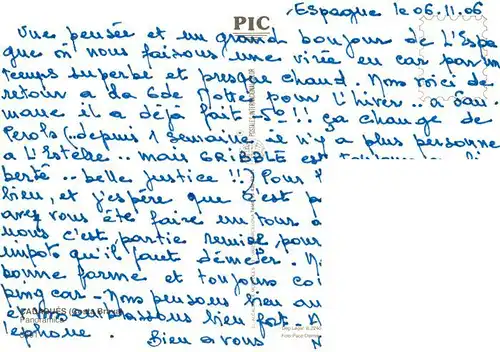 PIC
Espagne le 06.11.06
Une pensée et un grand bonjour de L'Espa
gne où nous faisons une virée en car par un
temps superbe et presque chaud. Nous voici de
retour a La Gde Motte pour L'hiver.. Sau
mane il a déjà fait -5°!! ça change de
Perols (.. depuis 1 semaine il n'y a plus personne
a L'Estelle.. mais GRIBBLE est toujours en li
berté.. belle justice !!) Pour
bien, et j'espère que c'est
avez vous été faire un tour
nous c'est partie remise, pour
impots qu'il faut
bonne forme et toujours
ping car - Nous pensons bien
et vous embrassons bien fort.
léphone. Bien a vous
CADAQUÉS (Costa Brava)
Panorámica